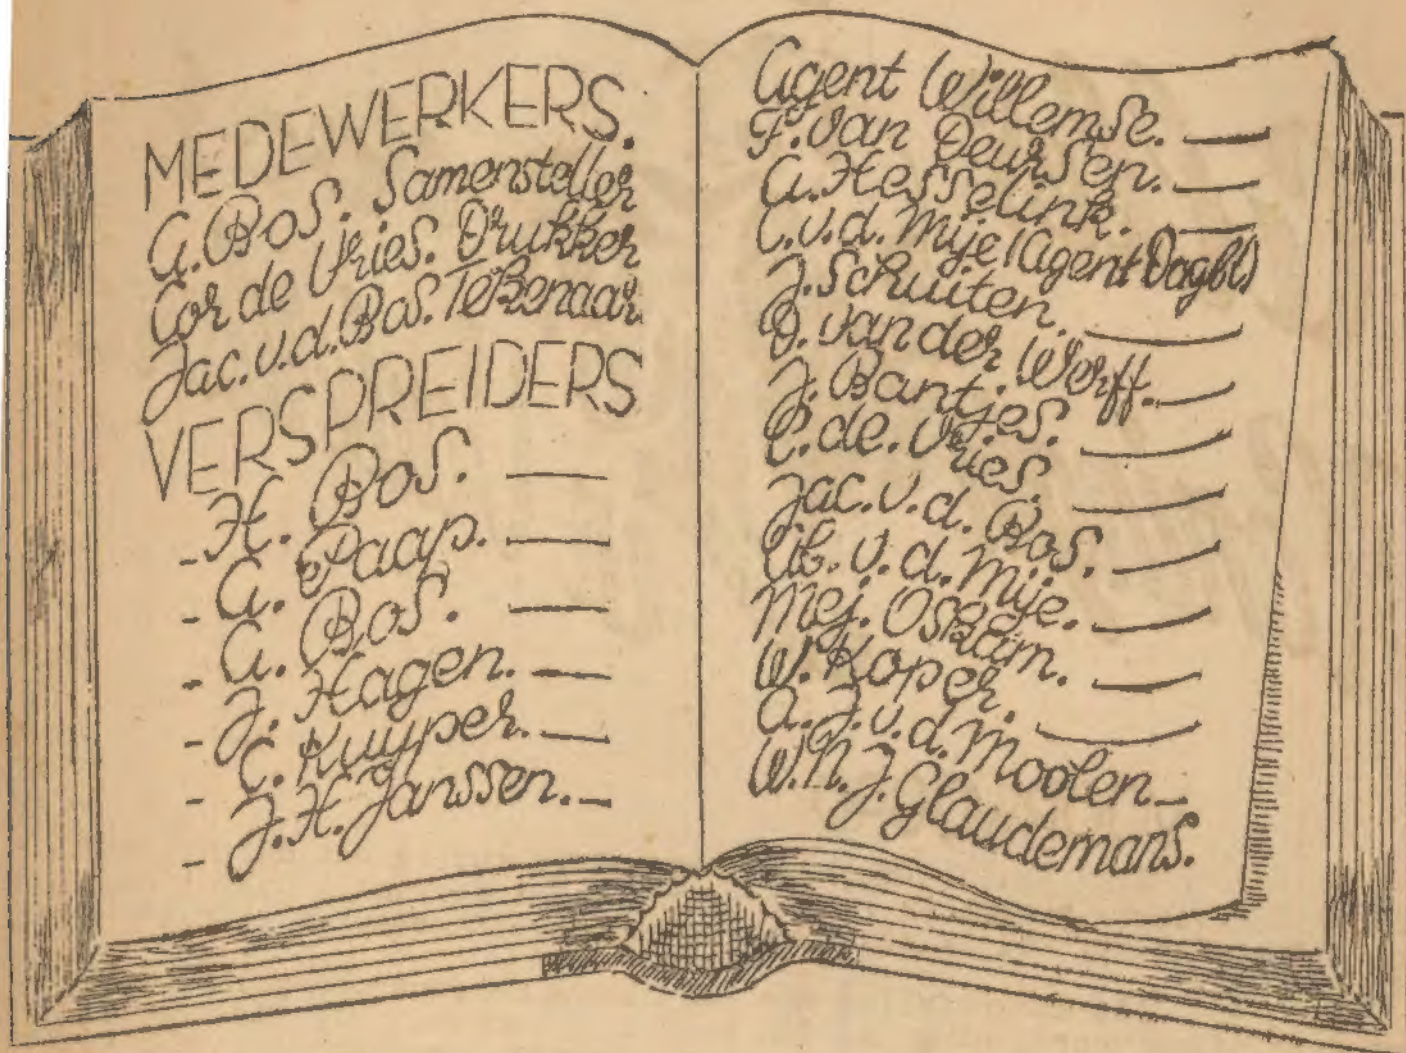 MEDEWERKERS.
A. Bos. Samensteller
Cor de Vries. Drukker
Jac. v. d. Bos. Tekenaar.
VERSPREIDERS
- H. Bos. —
- A. Paap. —
- A. Bos. —
- J. Hagen. —
- C. Kuyper. —
- J. H. Janssen. —
Agent Willemse. —
F. van Deursen. —
A. Hesselink. —
C. v. d. Mije (Agent Dagbl)
J. Schuiten. —
D. van der Werff. —
J. Bantjes. —
C. de. Vries. —
Jac. v. d. Bos. —
Ab. v. d. Mije. —
Mej. Oskam. —
W. Koper. —
A. J. v. d. Moolen —
W. N. J. Glaudemans.